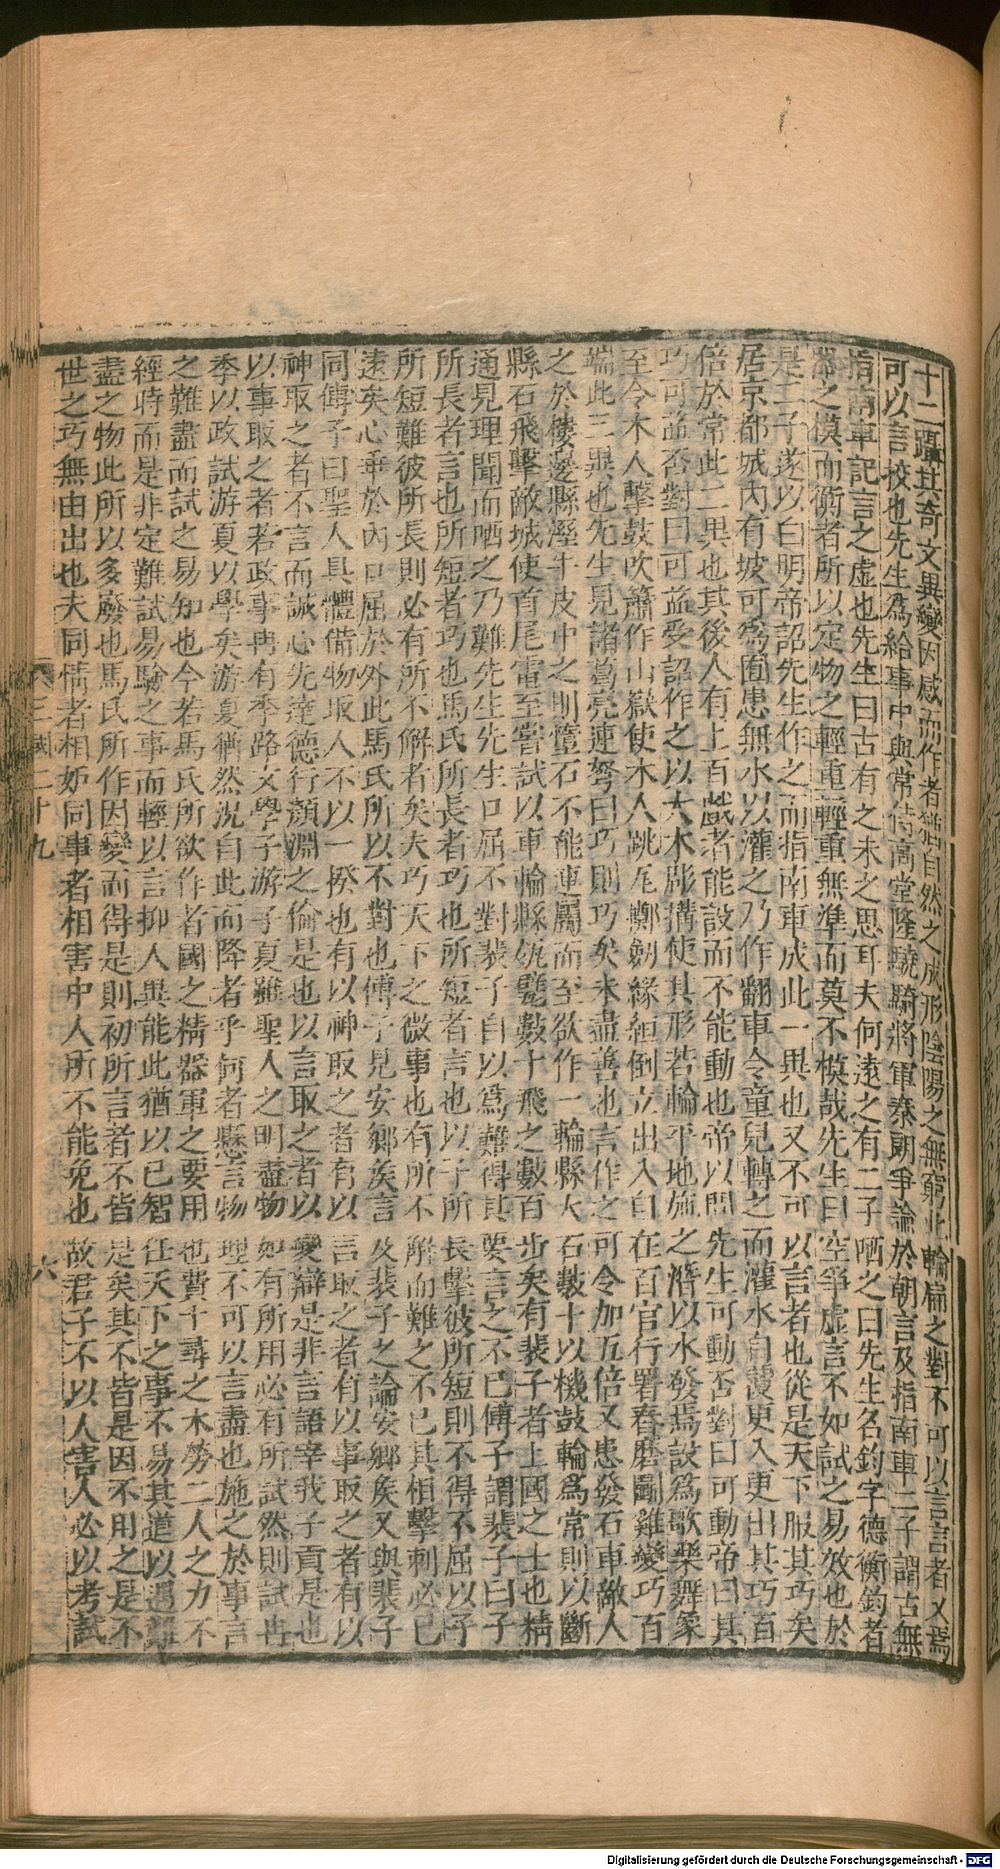 十二躡其奇文異變因感而作者猶自然之成形陰陽之無窮此輪扁之對不可以言言者又焉
可以言校也先生爲給事中與常侍高堂隆驍騎將軍秦朗爭論於朝言及指南車二子謂古無
指南車記言之虛也先生曰古有之未之思耳夫何遠之有二子哂之曰先生名鈞字德衡鈞者
器之模而衡者所以定物之輕重輕重無準而莫不模哉先生曰空爭虛言不如試之易效也於
是二子遂以白明帝詔先生作之而指南車成此一異也又不可以言者也從是天下服其巧矣
居京都城內有坡可爲囿患無水以灌之乃作翻車令童兒轉之而灌水自覆更入更出其巧百
倍於常此二異也其後人有上百戲者能設而不能動也帝以問先生可動否對曰可動帝曰其
巧可益否對曰可益受詔作之以大木彫搆使其形若輪平地施之潛以水發焉設爲歌樂舞象
至令木人擊鼓吹簫作山嶽使木人跳丸擲劍緣絙倒立出入自在百官行署舂磨鬬雞變巧百
端此三異也先生見諸葛亮連弩曰巧則巧矣未盡善也言作之可令加五倍又患發石車敵人
之於樓邊縣溼牛皮中之則墮石不能連屬而至欲作一輪縣大石數十以機鼓輪爲常則以斷
縣石飛擊敵城使首尾電至嘗試以車輪縣瓴甓數十飛之數百步矣有裴子者上國之士也精
通見理聞而哂之乃難先生先生口屈不對裴子自以爲難得其要言之不已傅子謂裴子曰子
所長者言也所短者巧也馬氏所長者巧也所短者言也以子所長擊彼所短則不得不屈以子
所短難彼所長則必有所不解者矣夫巧天下之微事也有所不解而難之不已其相擊刺必已
遠矣心乖於內口屈於外此馬氏所以不對也傅子見安鄉矦言及裴子之論安鄉矦又與裴子
同傅子曰聖人具體備物取人不以一揆也有以神取之者有以言取之者有以事取之者有以
神取之者不言而誠心先達德行顏淵之倫是也以言取之者以變辯是非言語宰我子貢是也
以事取之者若政事冉有季路文學子游子夏雖聖人之明盡物如有所用必有所試然則試冉
季以政試游夏以學矣游夏猶然況自此而降者乎何者懸言物理不可以言盡也施之於事言
之難盡而試之易知也今若馬氏所欲作者國之精器軍之要用也費十尋之木勞二人之力不
經時而是非定難試易驗之事而輕以言抑人異能此猶以己智任天下之事不易其道以遇難
盡之物此所以多廢也馬氏所作因變而得是則初所言者不皆是矣其不皆是因不用之是不
世之巧無由出也夫同情者相妒同事者相害中人所不能免也故君子不以人害人必以考試
三國二十九 六
Digitalisierung gefördert durch die Deutsche Forschungsgemeinschaft - DFG